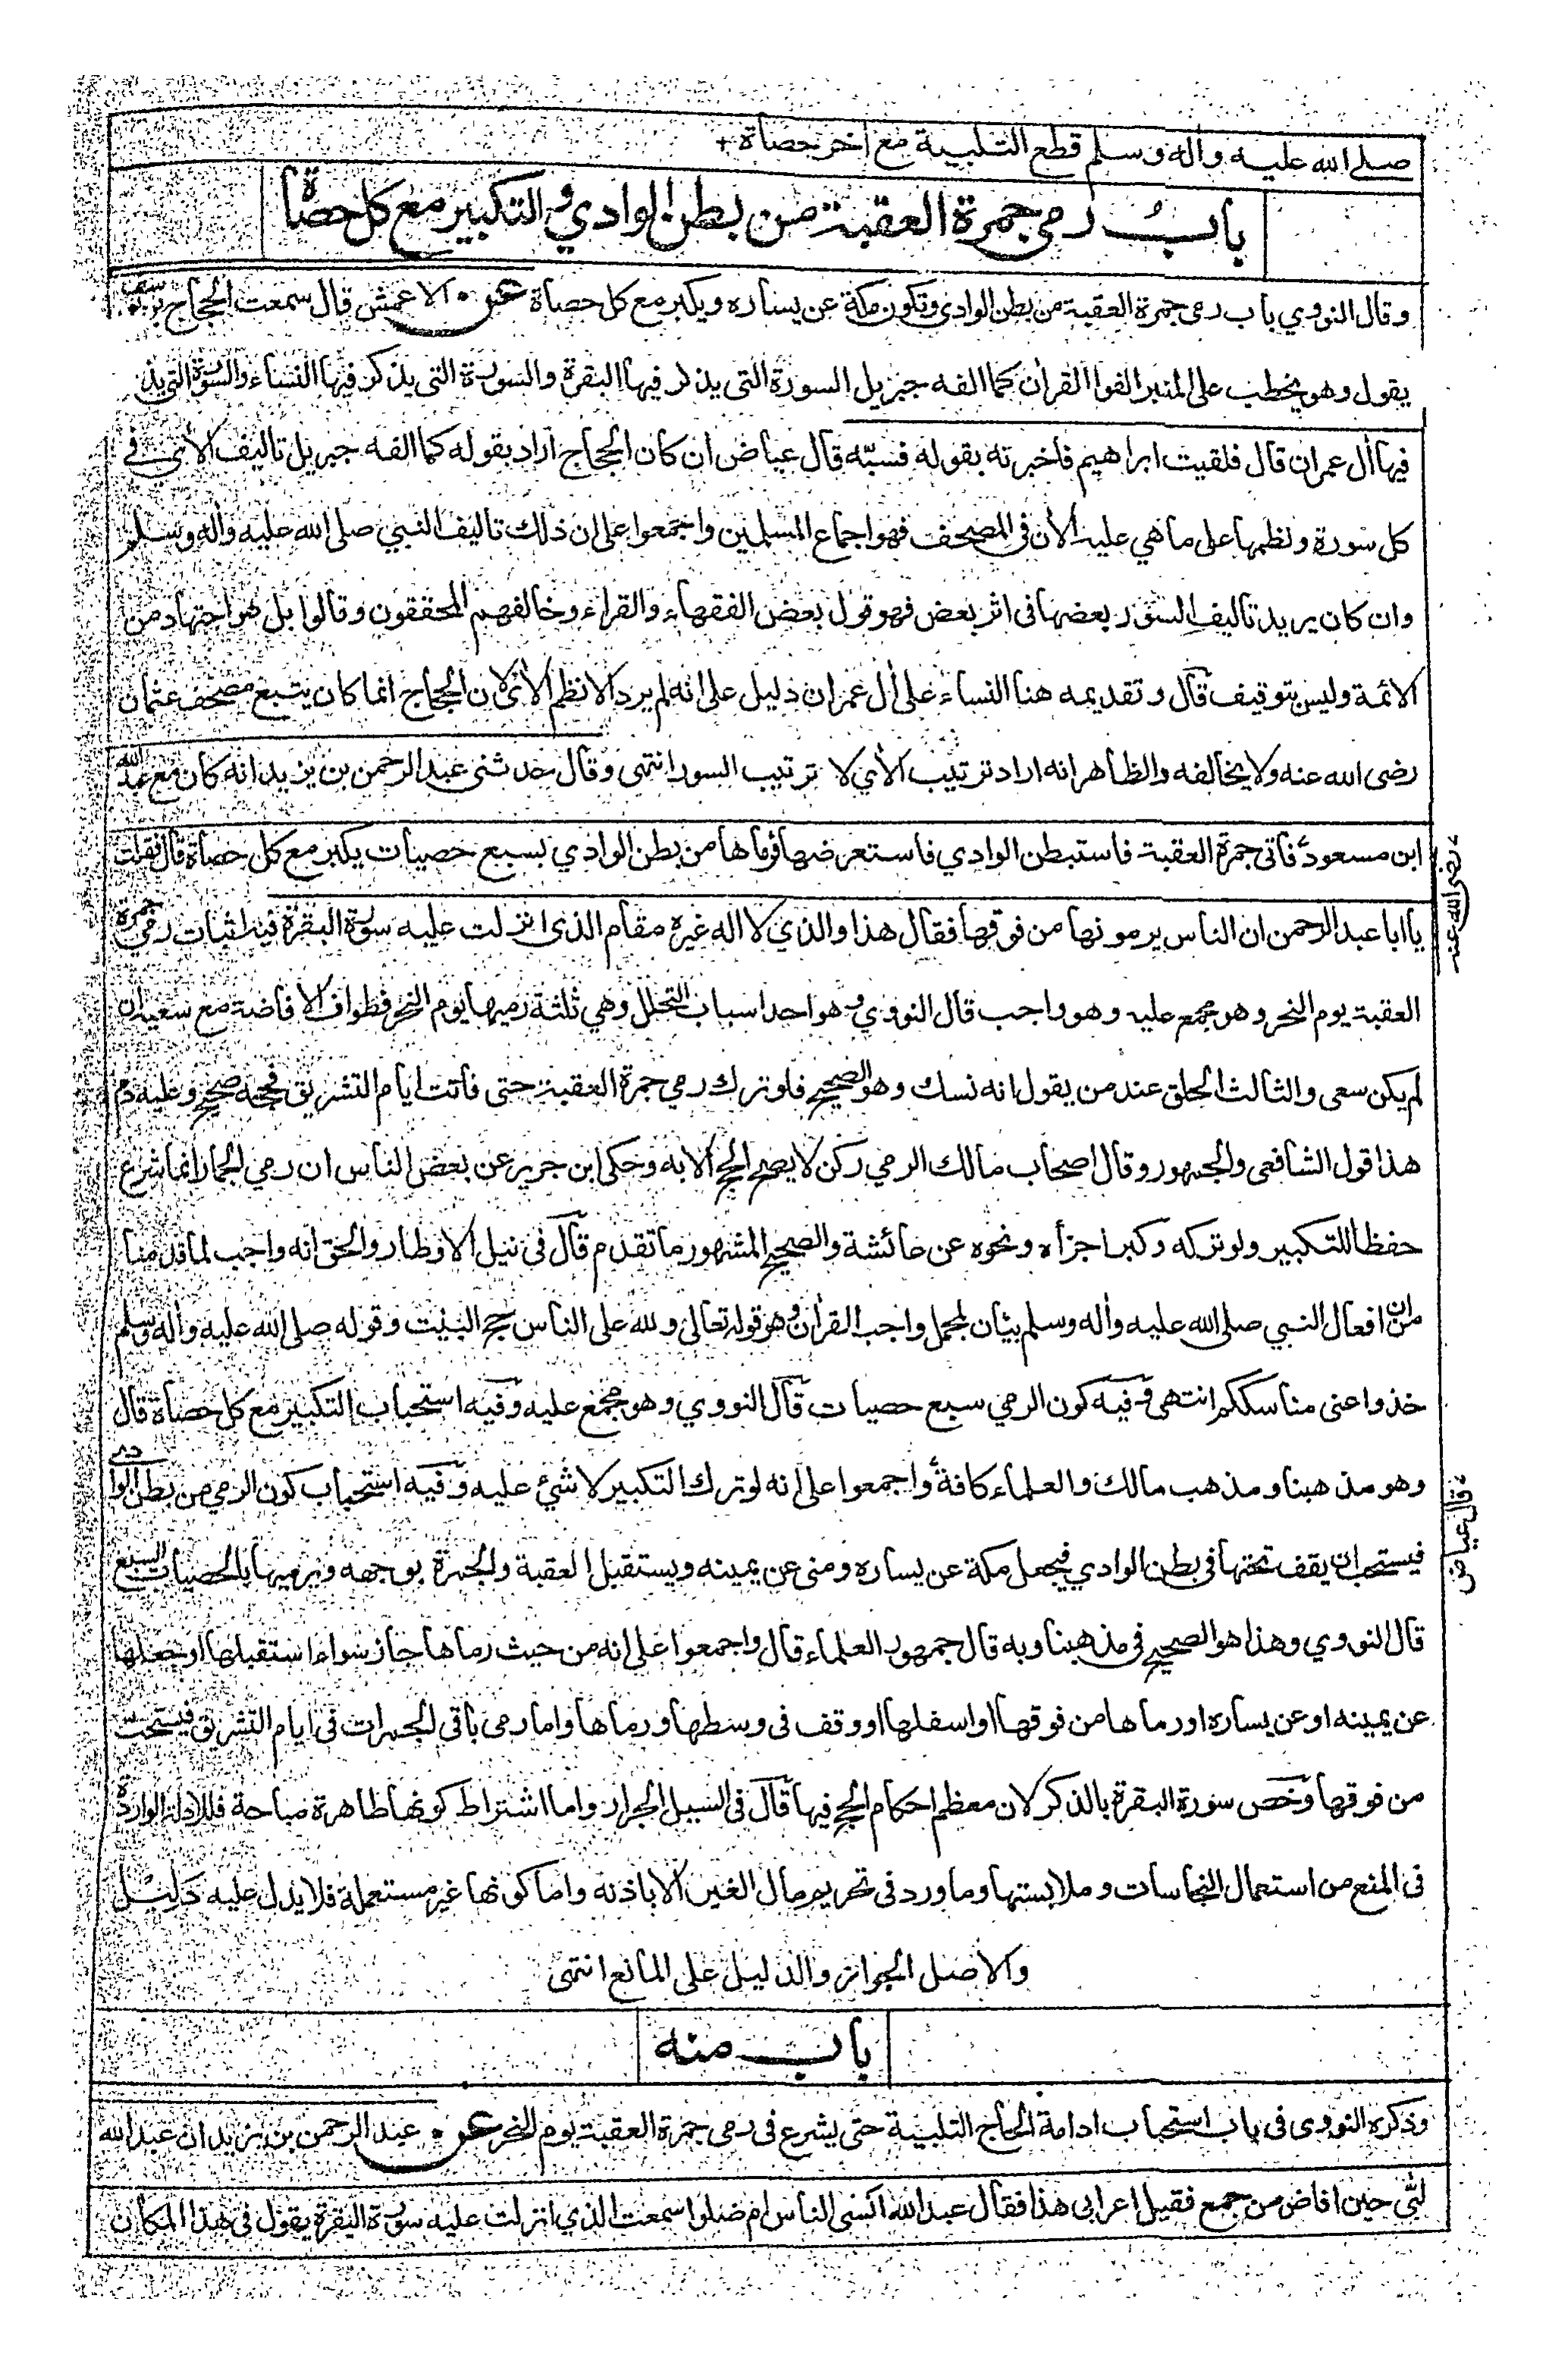 صلى الله عليه وآله وسلم قطع التلبية مع آخر حصاة +
باب رمي جمرة العقبة من بطن الوادي والتكبير مع كل حصاة
وقال النووي باب رمي جمرة العقبة من بطن الوادي وتكون مكة عن يساره ويكبر مع كل حصاة عن الاعمش قال سمعت الحجاج بن يوسف
يقول وهو يخطب على المنبر الفوا القرآن كما الفه جبريل السورة التي يذكر فيها البقرة والسورة التي يذكر فيها النساء والسورة التي يذكر
فيها آل عمران قال فلقيت ابراهيم فاخبرته بقوله فسبّه قال عياض ان كان الحجاج اراد بقوله كما الفه جبريل تاليف الآي في
كل سورة ونظمها على ما هي عليه الآن في المصحف فهو اجماع المسلمين واجمعوا على ان ذلك تاليف النبي صلى الله عليه وآله وسلم
وان كان يريد تاليف السور بعضها في اثر بعض فهو قول بعض الفقهاء والقراء وخالفهم المحققون وقالوا بل هو اجتهاد من
الائمة وليس بتوقيف قال وتقديمه هنا النساء على آل عمران دليل على انه لم يرد الا نظم الآي لان الحجاج انما كان يتبع مصحف عثمان
رضى الله عنه ولا يخالفه والظاهر انه اراد ترتيب الآي لا ترتيب السور انتهى وقال حدثني عبد الرحمن بن يزيد انه كان مع عبد الله
ابن مسعود فاتى جمرة العقبة فاستبطن الوادي فاستعرضها فرماها من بطن الوادي بسبع حصيات يكبر مع كل حصاة قال فقلت
رضى الله عنه
يا ابا عبد الرحمن ان الناس يرمونها من فوقها فقال هذا والذي لا اله غيره مقام الذي انزلت عليه سورة البقرة فيه اثبات رمي جمرة
العقبة يوم النحر وهو مجمع عليه وهو واجب قال النووي وهو احد اسباب التحلل وهي ثلثة رميها يوم النحر فطواف الافاضة مع سعيه ان
لم يكن سعى والثالث الحلق عند من يقول انه نسك وهو الصحيح فلو ترك رمي جمرة العقبة حتى فاتت ايام التشريق فحجه صحيح وعليه دم
هذا قول الشافعي والجمهور وقال اصحاب مالك الرمي ركن لا يصح الحج الا به وحكى ابن جرير عن بعض الناس ان رمي الجمار انما شرع
حفظا للتكبير ولو تركه وكبر اجزأه ونحوه عن عائشة والصحيح المشهور ما تقدم قال في نيل الاوطار والحق انه واجب لما قدمنا
من ان افعال النبي صلى الله عليه وآله وسلم بيان لمجمل واجب القرآن وهو قوله تعالى ولله على الناس حج البيت وقوله صلى الله عليه وآله وسلم
خذوا عني مناسككم انتهى وفيه كون الرمي سبع حصيات قال النووي وهو مجمع عليه وفيه استحباب التكبير مع كل حصاة قال
وهو مذهبنا ومذهب مالك والعلماء كافة واجمعوا على انه لو ترك التكبير لا شئ عليه وفيه استحباب كون الرمي من بطن الوادي
قال عياض
فيستحب ان يقف تحتها في بطن الوادي فيجعل مكة عن يساره ومنى عن يمينه ويستقبل العقبة والجمرة بوجهه ويرميها بالحصيات السبع
قال النووي وهذا هو الصحيح في مذهبنا وبه قال جمهور العلماء قال واجمعوا على انه من حيث رماها جاز سواء استقبلها او جعلها
عن يمينه او عن يساره او رماها من فوقها او اسفلها او وقف في وسطها ورماها واما رمي باقي الجمرات في ايام التشريق فيستحب
من فوقها وخص سورة البقرة بالذكر لان معظم احكام الحج فيها قال في السيل الجرار واما اشتراط كونها طاهرة مباحة فللادلة الواردة
في المنع من استعمال النجاسات وملابستها وما ورد في تحريم مال الغير الا باذنه واما كونها غير مستعملة فلا يدل عليه دليل
والاصل الجواز والدليل على المانع انتهى
باب منه
وذكره النووي في باب استحباب ادامة الحاج التلبية حتى يشرع في رمي جمرة العقبة يوم النحر عن عبد الرحمن بن يزيد ان عبد الله
لبّى حين افاض من جمع فقيل اعرابي هذا فقال عبد الله انسى الناس ام ضلوا سمعت الذي انزلت عليه سورة البقرة يقول في هذا المكان